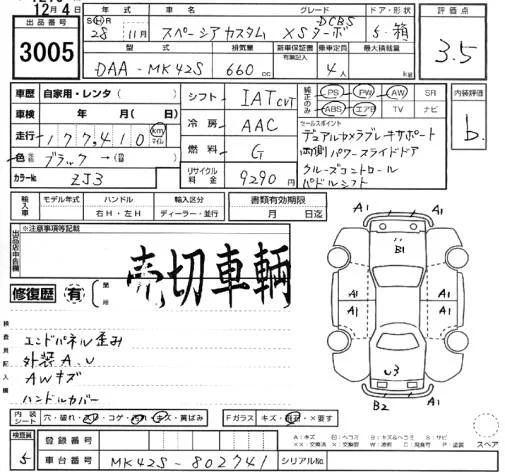 12月4日
出品番号
3005
年式
車名
グレード
ドア・形状
評価点
S H R
28 11月
スペーシアカスタム
DCBS
XSターボ
5 箱
3.5
型式
排気量
新車保証書
有無記入
乗車定員
最大積載量
DAA-MK42S
660 cc
4人
kg
車歴 自家用・レンタ( )
車検 年 月( 日)
走行 177,410 km マイル
色 ブラック →( )
カラーNo. ZJ3
シフト IAT CVT
冷房 AAC
燃料 G
リサイクル料金 9290円
純正のみ
PS PW AW SR
ABS エアB TV ナビ
内装評価
b
セールスポイント
デュアルカメラブレーキサポート
両側パワースライドドア
クルーズコントロール
パドルシフト
輸入車
モデル年式
ハンドル
右H・左H
輸入区分
ディーラー・並行
書類有効期限
月 日迄
※注意事項等記載
売切車輌
修復歴 有
箇所
検査員記入欄
エンドパネル歪み
外装A.U
AWキズ
ハンドルカバー
A1
A1
B1
A1
A1
A1
A1
U3
A1
B2
スペア
内装シート
穴・破れ・スレ・コゲ・汚れ・キズ・黄ばみ
Fガラス
キズ・・×要す
検査員
5
登録番号
車台番号
MK42S-802741
シリアルNo.